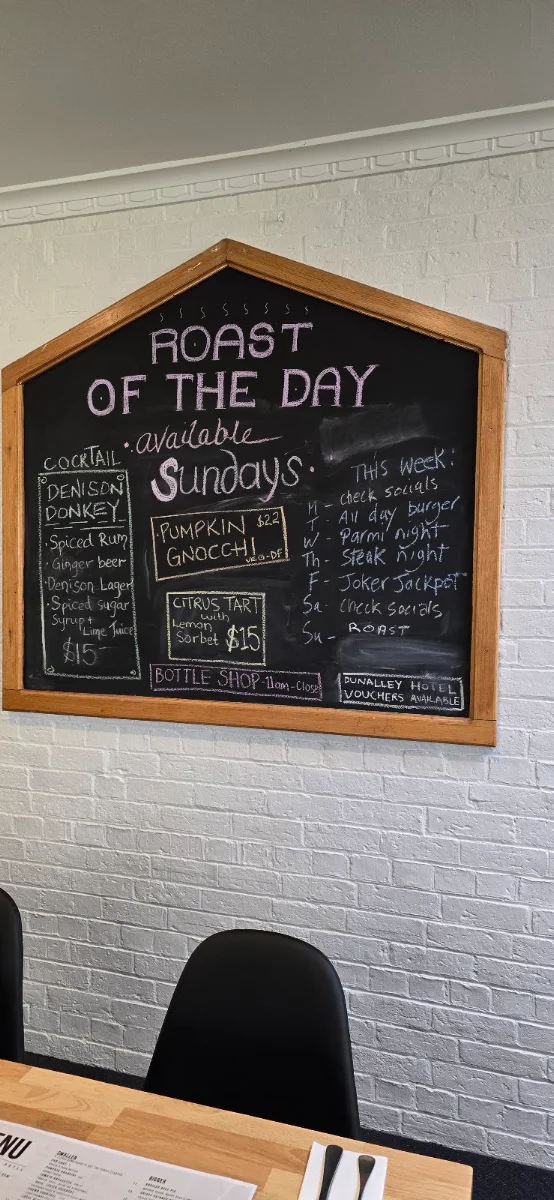 ROAST
OF THE DAY
·available
Sundays·
COCKTAIL
DENISON
DONKEY
·Spiced Rum
·Ginger beer
·Denison Lager
·Spiced sugar
Syrup +
Lime Juice
$15
PUMPKIN $22
GNOCCHI
VEG-DF
CITRUS TART
with
Lemon
Sorbet $15
BOTTLE SHOP-11am-Close
THIS Week:
M - check socials
T - All day burger
W - Parmi night
Th - Steak night
F - Joker Jackpot
Sa - Check socials
Su - ROAST
DUNALLEY HOTEL
VOUCHERS AVAILABLE
NU
SMALLER
BIGGER